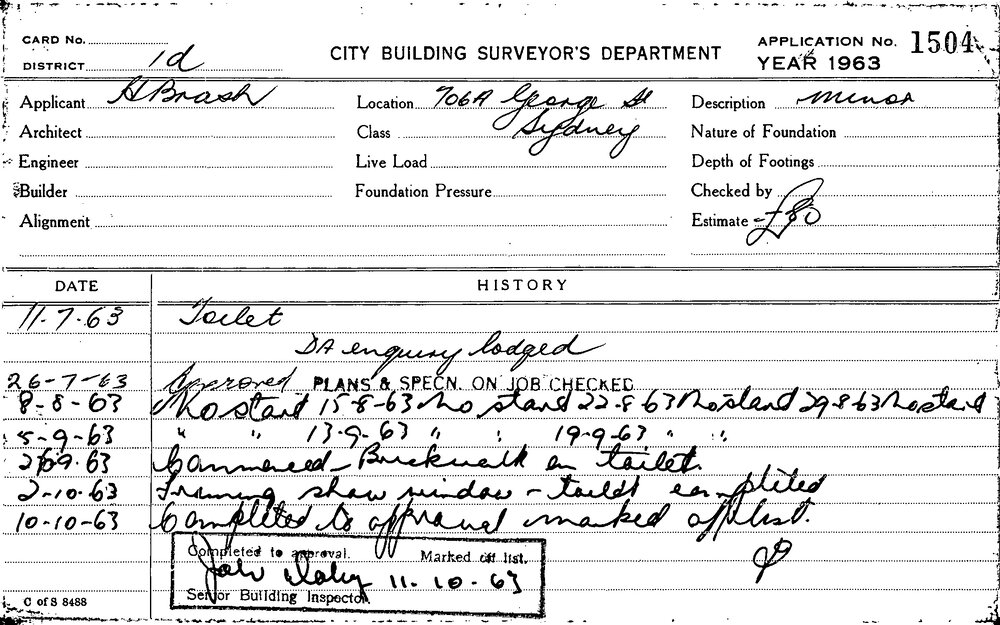 CARD No.
DISTRICT 1d
CITY BUILDING SURVEYOR'S DEPARTMENT
APPLICATION No. 1504
YEAR 1963
Applicant A Brash
Location 706A George St
Sydney
Description minor
Architect
Class
Nature of Foundation
Engineer
Live Load
Depth of Footings
Builder
Foundation Pressure
Checked by
Alignment
Estimate £80
DATE HISTORY
11.7.63 Toilet
DA enquiry lodged
26-7-63 Approved PLANS & SPECN. ON JOB CHECKED
8-8-63 No start 15-8-63 No start 22-8-63 No start 29-8-63 No start
5-9-63 " " 13-9-63 " " 19-9-63 " "
26.9.63 Commenced - Brickwork on toilet.
2-10-63 Framing show window - toilet completed
10-10-63 Completed to approval marked off list.
Completed to approval. Marked off list.
11-10-63
Senior Building Inspector.
C of S 8488